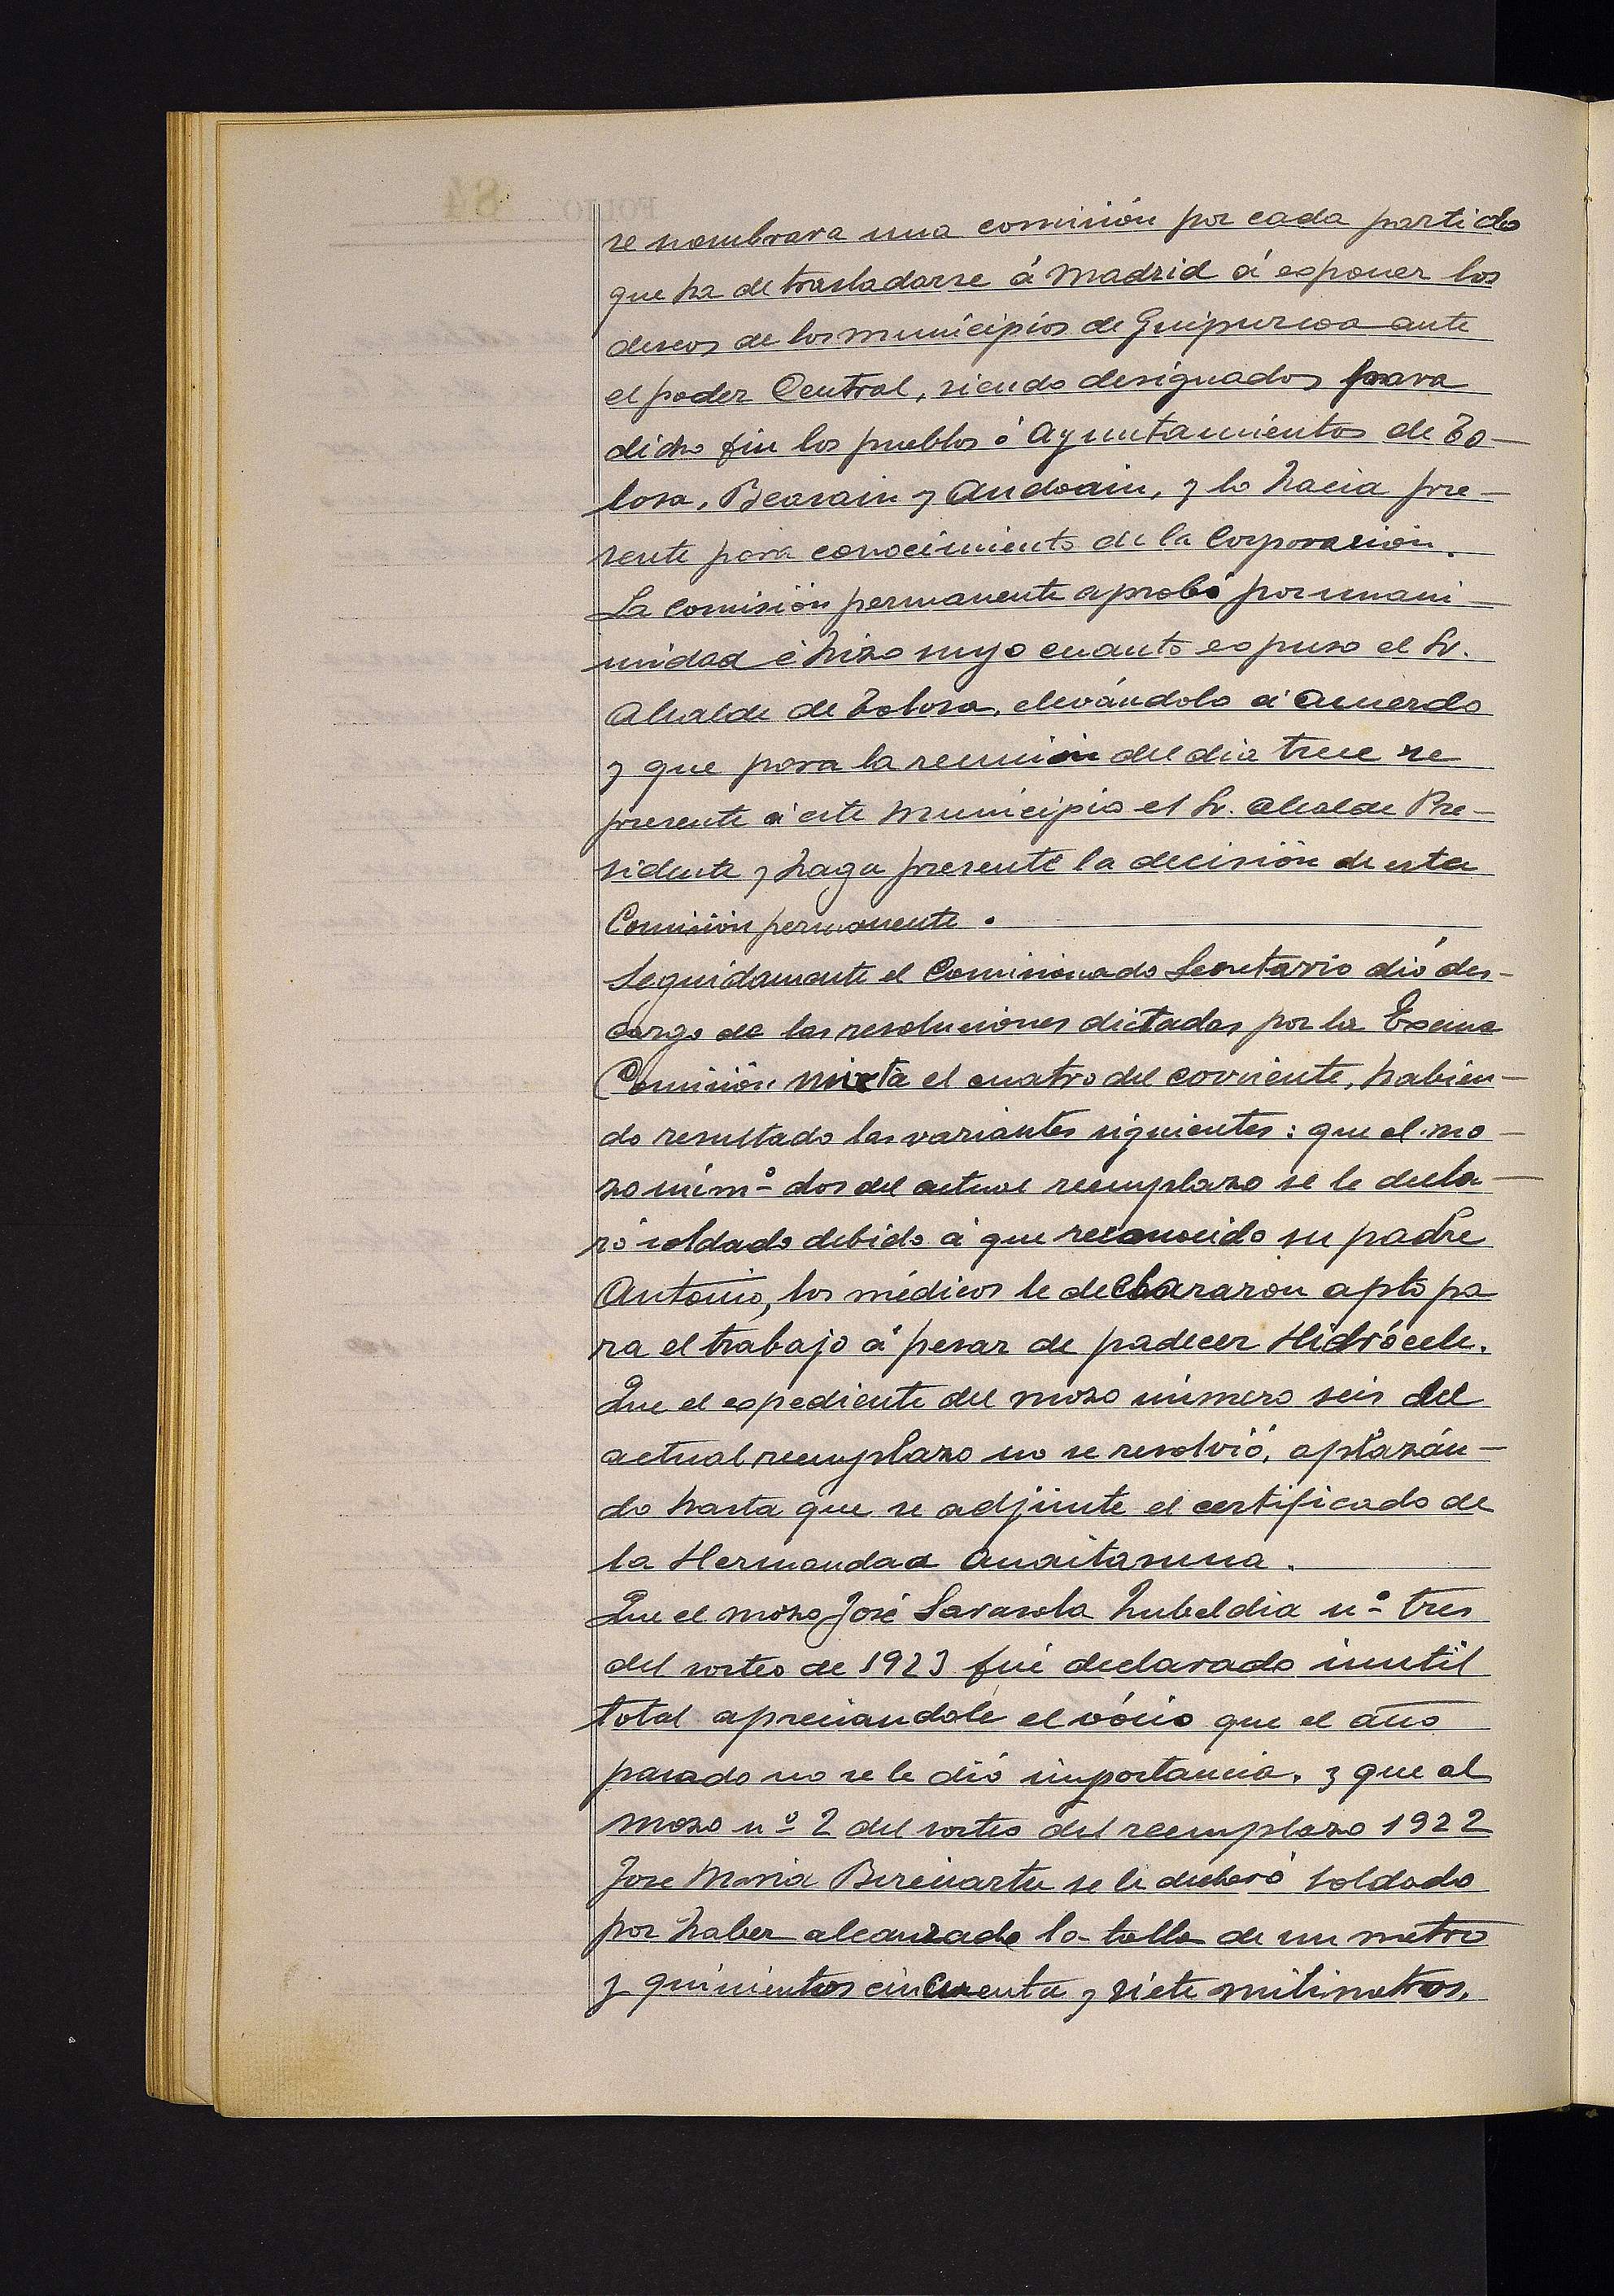 se nombrara una comisión por cada partido
que ha de trasladarse á Madrid á exponer los
deseos de los municipios de Guipuzcoa ante
el poder Central, siendo designados para
dicho fin los pueblos ó Ayuntamientos de To-
losa, Beasain y Andoain, y lo hacia pre-
sente para conocimiento de la Corporación.
La comisión permanente aprobó por unani-
midad é hizo suyo cuanto expuso el Sr.
Alcalde de Tolosa, elevándolo á acuerdo
y que para la reunión del dia trece re
presente á este Municipio el Sr. Alcalde Pre-
sidente y haga presente la decisión de esta
Comisión permanente.
Seguidamente el Comisionado Secretario dió des-
cargo de las resoluciones dictadas por la Excma
Comisión mixta el cuatro del corriente, habien-
do resultado las variantes siguientes: que el mo-
zo núm.º dos del actual reemplazo se le decla-
ró soldado debido á que reconocido su padre
Antonio, los médicos le declararon apto pa
ra el trabajo á pesar de padecer Hidrócele.
Que el expediente del mozo número seis del
actual reemplazo no se resolvió, aplazán-
do hasta que se adjunte el certificado de
la Hermandad Anaitasuna.
Que el mozo José Sarasola Zubeldia nº tres
del sorteo de 1923 fué declarado inutil
total apreciandole el vócio que el año
pasado no se le dió importancia. y que al
mozo nº 2 del sorteo del reemplazo 1922
Jose Maria se le declaró soldado
por haber alcanzado la talla de un metro
y quinientos cincuenta y siete milimetros.